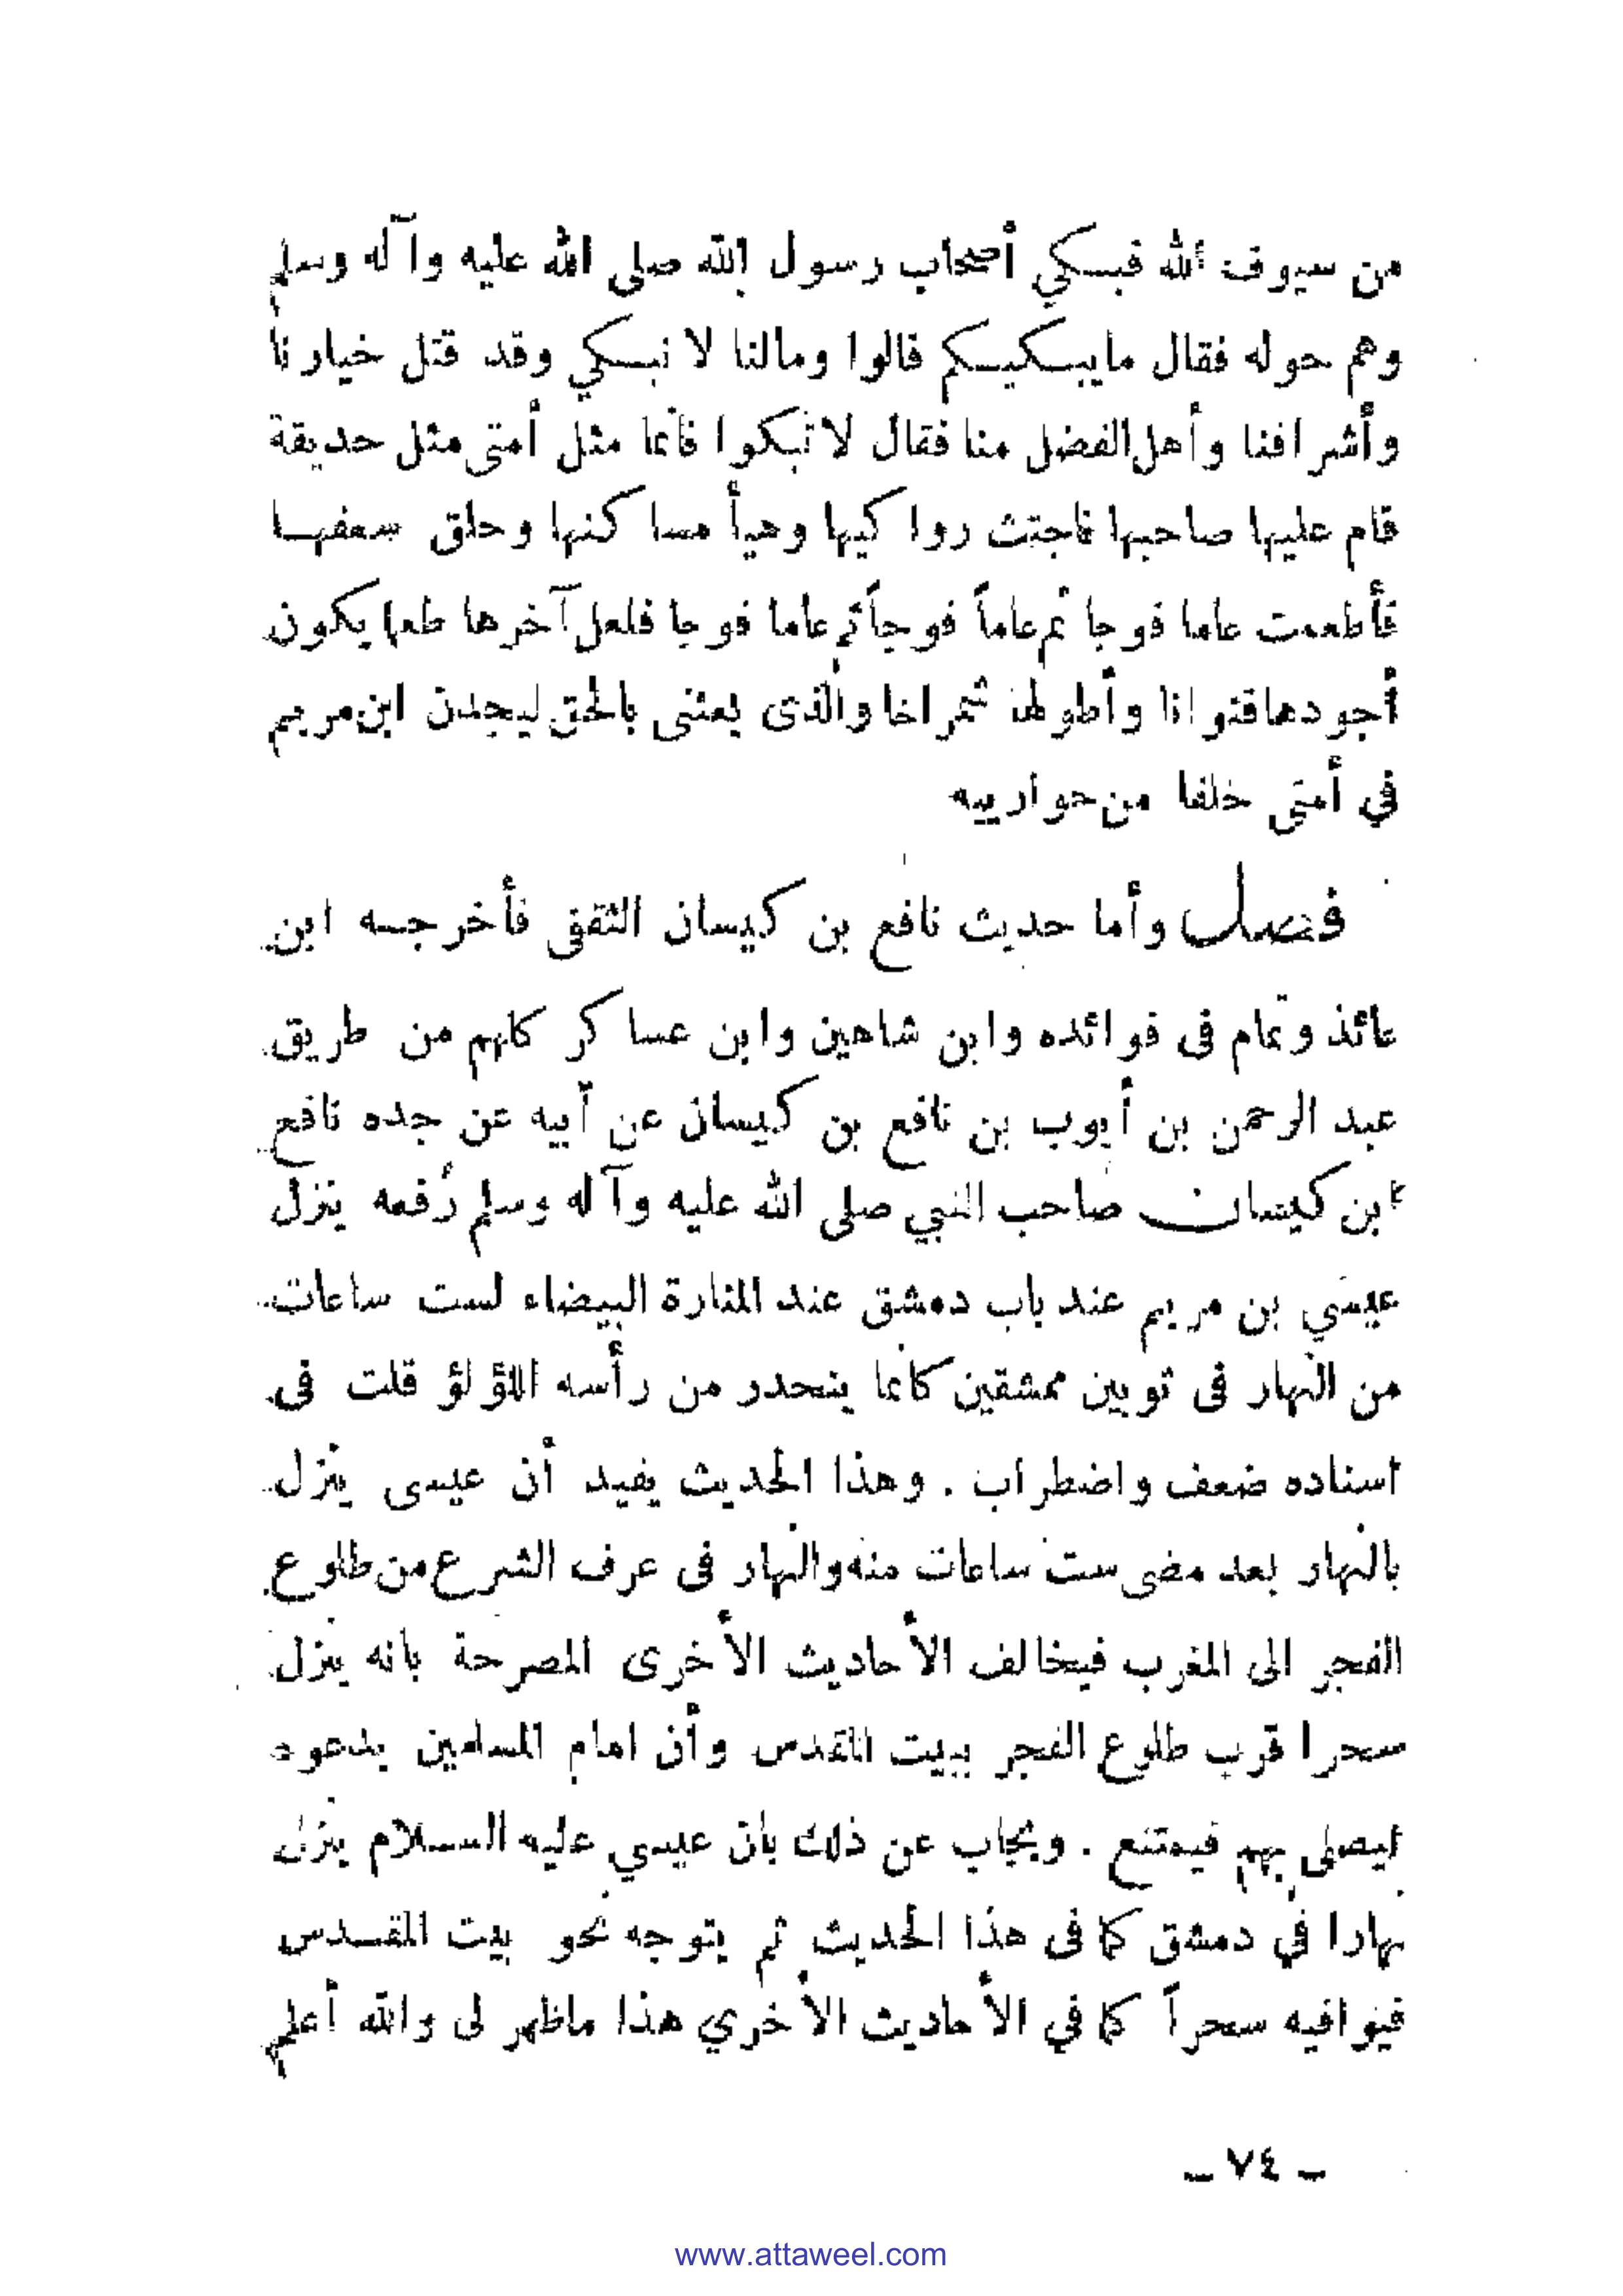 من سيوف الله فبكي أصحاب رسول الله صلى الله عليه وآله وسلم
وهم حوله فقال مايبكيكم قالوا ومالنا لا نبكي وقد قتل خيارنا
وأشرافنا وأهل الفضل منا فقال لا تبكوا فانما مثل أمتى مثل حديقة
قام عليها صاحبها فاجتث رواكيها وهيأ مساكنها وحلق سعفها
فأطعمت عاما فوجا ثم عاماً فوجاً ثم عاما فوجا فلعل آخرها طعما يكون
أجودها قنوانا وأطولها شمراخا والذى بعثنى بالحق ليجدن ابن مريم
في أمتى خلفا من حوارييه
فصل وأما حديث نافع بن كيسان الثقفى فأخرجه ابن
عائذ وتمام فى فوائده وابن شاهين وابن عساكر كلهم من طريق
عبد الرحمن بن أيوب بن نافع بن كيسان عن أبيه عن جده نافع
ابن كيسان صاحب النبي صلى الله عليه وآله وسلم رفعه ينزل
عيسي بن مريم عند باب دمشق عند المنارة البيضاء لست ساعات
من النهار فى ثوبين ممشقين كانما ينحدر من رأسه اللؤلؤ قلت فى
اسناده ضعف واضطراب . وهذا الحديث يفيد أن عيسى ينزل
بالنهار بعد مضى ست ساعات منه والنهار فى عرف الشرع من طلوع
الفجر الى المغرب فيخالف الأحاديث الأخرى المصرحة بانه ينزل
سحرا قرب طلوع الفجر ببيت المقدس وأن امام المسلمين يدعوه
ليصلى بهم فيمتنع . ويجاب عن ذلك بان عيسي عليه السلام ينزل
نهارا في دمشق كما فى هذا الحديث ثم يتوجه نحو بيت المقدس
فيوافيه سحراً كما في الأحاديث الأخري هذا ماظهر لى والله أعلم
– ٧٤ –
www.attaweel.com